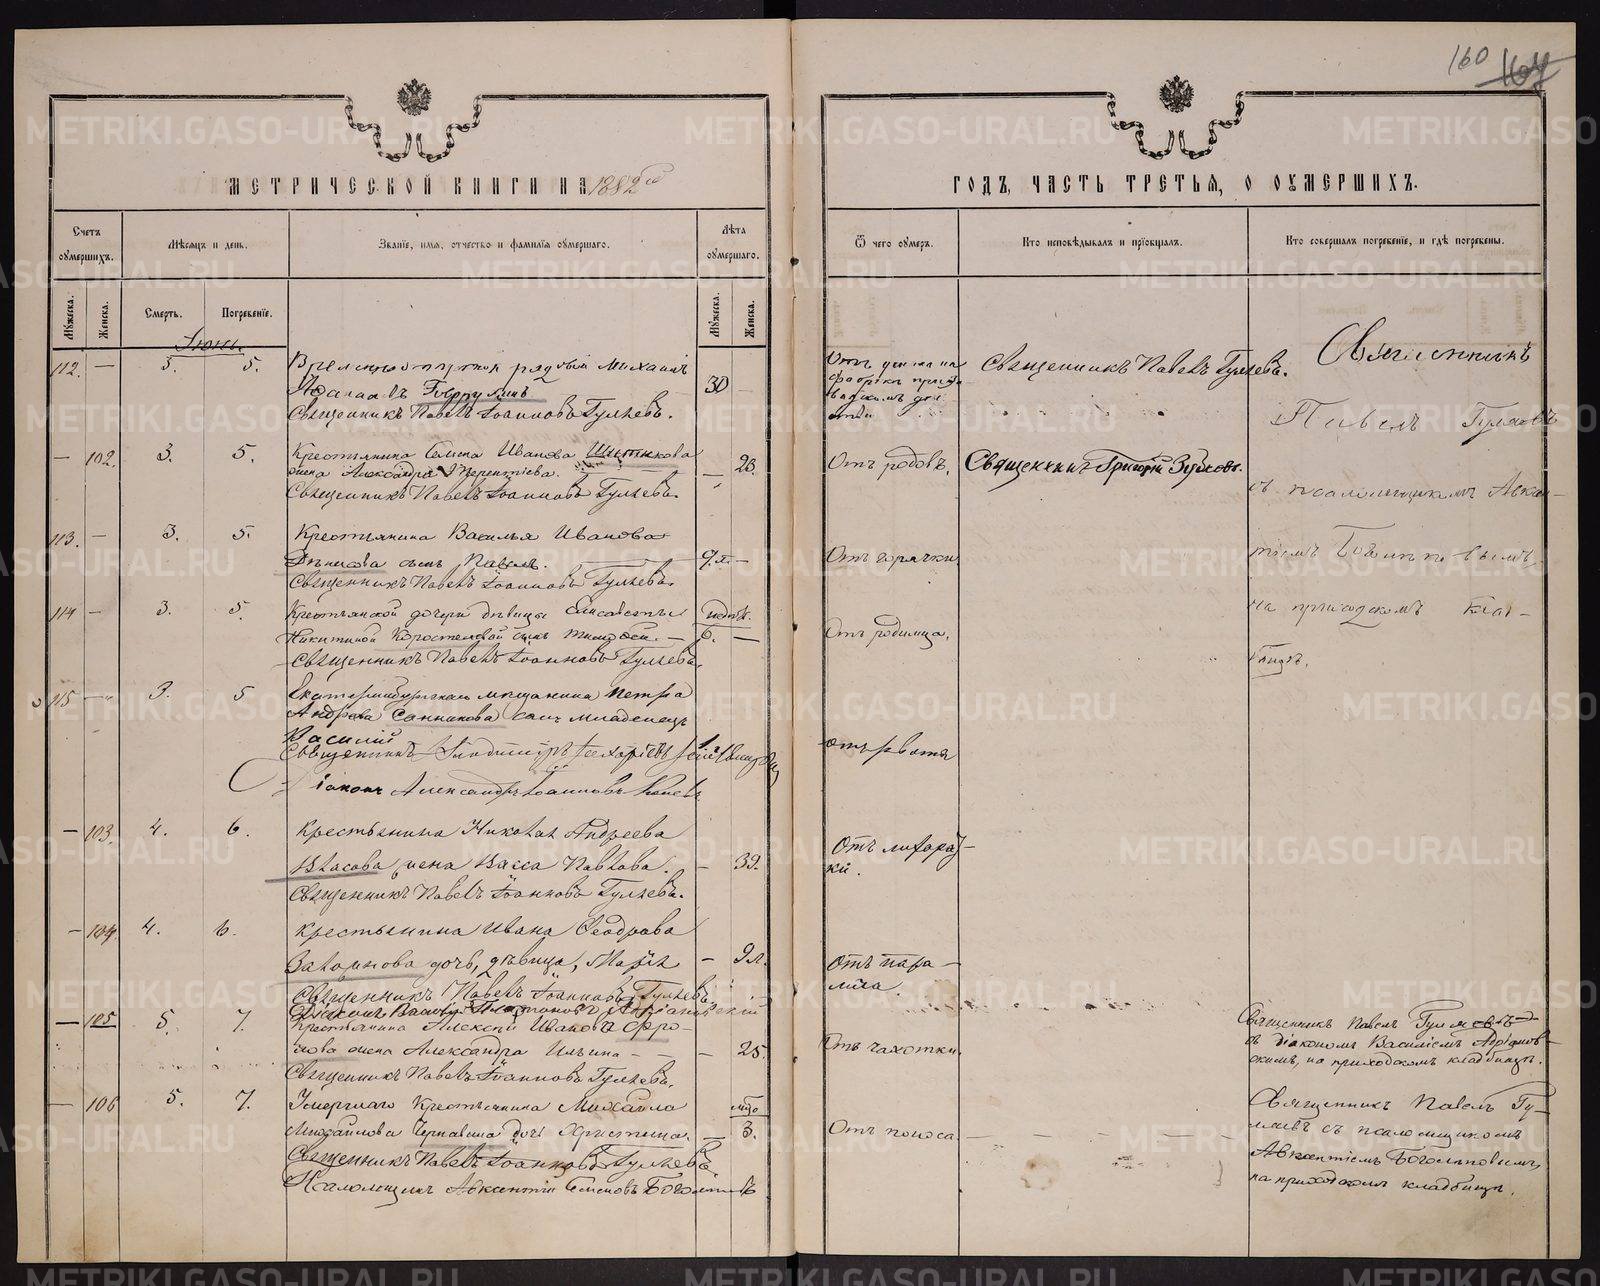 160
МЕТРИЧЕСКОЙ КНИГИ НА 1882 ой
ГОДЪ, ЧАСТЬ ТРЕТЬЯ, О ОУМЕРШИХЪ.
Счетъ оумершихъ.
Мѣсяцъ и день.
Званіе, имя, отчество и фамилія оумершаго.
Лѣта оумершаго.
Ѿ чего оумеръ.
Кто исповѣдывалъ и пріобщалъ.
Кто совершалъ погребеніе, и гдѣ погребены.
Мужеска.
Женска.
Смерть.
Погребеніе.
Мужеска.
Женска.
Іюнь
112. — 3. 5. рядовой Михаилъ
30 —
Священникъ Павелъ Іоанновъ Гуляевъ.
Священникъ Павелъ Гуляевъ.
Священникъ
Павелъ Гуляевъ
— 102. 3. 5. Крестьянина Семена Иванова
жена Александра Терентіева. — 23.
Священникъ Павелъ Іоанновъ Гуляевъ.
Отъ родовъ.
Священникъ Григорій Зубковъ.
съ псаломщикомъ Авксен-
тіемъ Боголѣповымъ,
на приходскомъ клад-
бищѣ.
113. — 3. 5. Крестьянина Василья Иванова
Денисова сынъ Павелъ. 9 л. —
Священникъ Павелъ Іоанновъ Гуляевъ.
Отъ горячки
114 — 3. 5. Крестьянской дочери дѣвицы Елисаветы
Никитиной Коростелевой сынъ Тимофей. — недѣль 6. —
Священникъ Павелъ Іоанновъ Гуляевъ.
Отъ родимца.
115 — 3. 5 Екатеринбургскаго мѣщанина Петра
Андреева Санникова сынъ младенецъ
Василій
Священникъ
Діаконъ Александръ Іоанновъ
отъ рвоты
— 103. 4. 6. Крестьянина Николая Андреева
Власова жена Васса Павлова. — 39.
Священникъ Павелъ Іоаннова Гуляевъ.
Отъ лихорад-
ки.
— 104. 4. 6. Крестьянина Ивана Феодрова
дочь, дѣвица, Марія — 9 л.
Священникъ Павелъ Іоанновъ Гуляевъ
Отъ пара-
лича.
Діаконъ Василій Платоновъ Адріановскій
— 105 5. 7. Крестьянина Алексѣя Иванова Фро-
лова жена Александра Ильина — — 25.
Священникъ Павелъ Іоанновъ Гуляевъ.
Отъ чахотки.
Священникъ Павелъ Гуляевъ
съ діакономъ Василіемъ Адріанов-
скимъ, на приходскомъ кладбищѣ.
— 106 5. 7. Умершаго Крестьянина Михаила
Михайлова Чернавина дочь Христина. — 3.
Священникъ Павелъ Іоанновъ Гуляевъ.
Псаломщикъ Авксентій Семеновъ Боголѣповъ
Отъ поноса — — — — —
Священникъ Павелъ Гу-
ляевъ съ псаломщикомъ
Авксентіемъ Боголѣповымъ,
на приходскомъ кладбищѣ.
METRIKI.GASO-URAL.RU